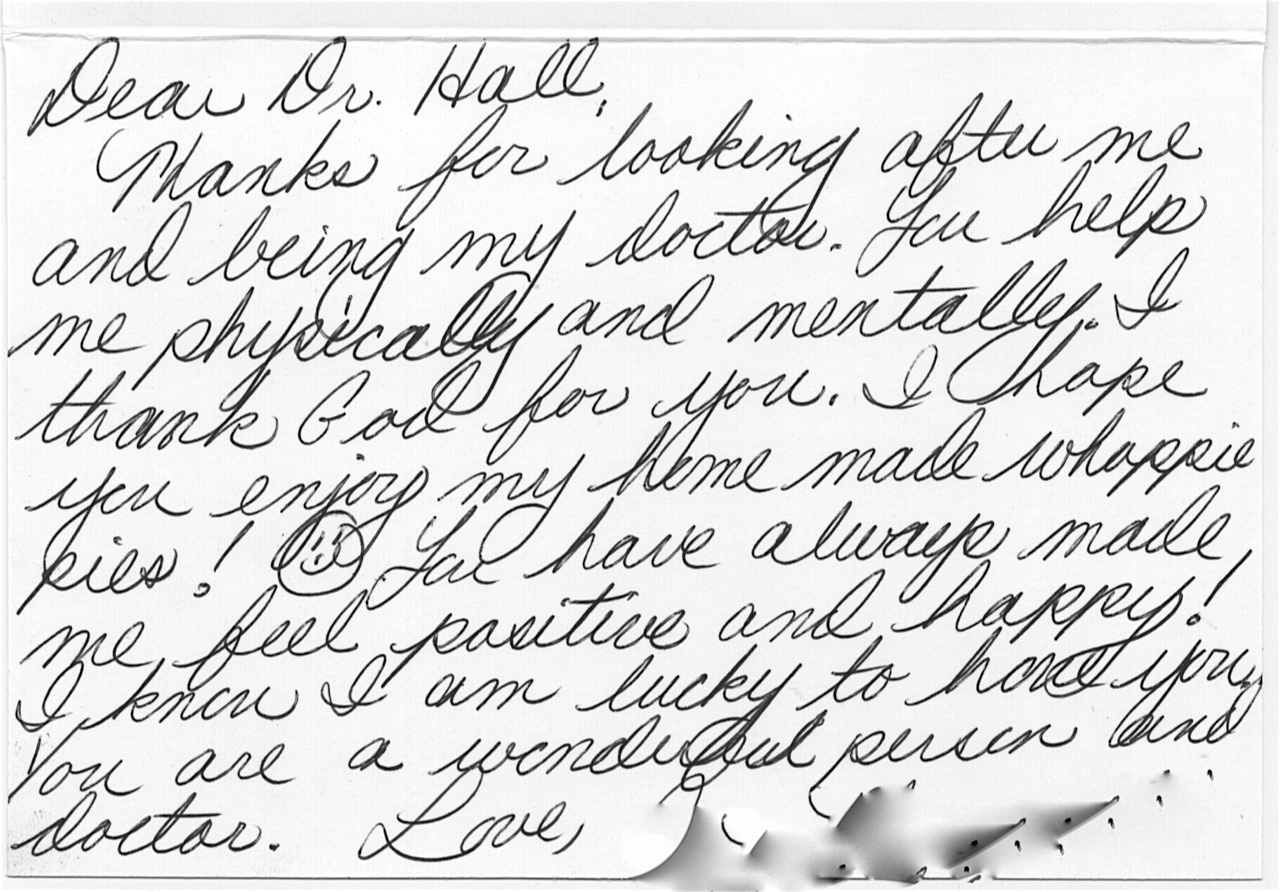 Dear Dr. Hall,
Thanks for looking after me
and being my doctor. You help
me physically and mentally. I
thank God for you. I hope
you enjoy my home made whoppie
pies! You have always made
me feel positive and happy!
I know I am lucky to have you,
You are a wonderful person and
doctor. Love,